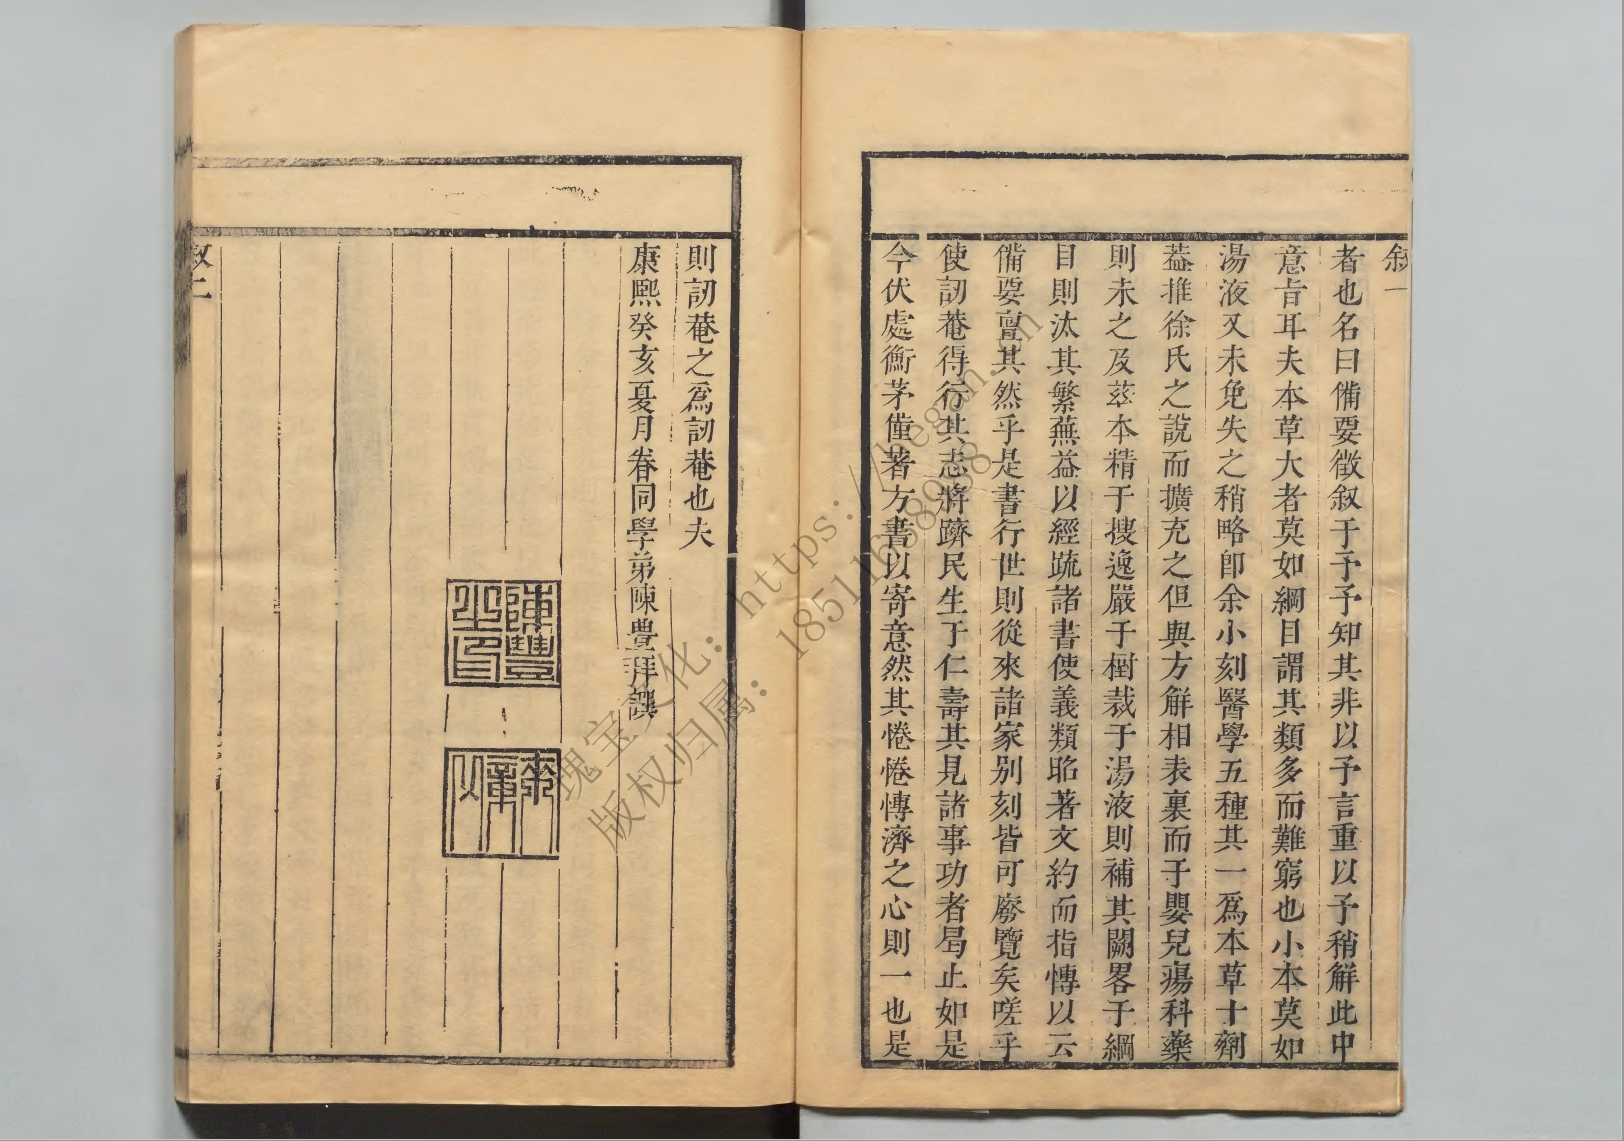 叙一
者也名曰備要徵叙于予予知其非以予言重以予稍解此中
意旨耳夫本草大者莫如綱目謂其類多而難窮也小本莫如
湯液又未免失之稍略卽余小刻醫學五種其一爲本草十劑
葢推徐氏之說而擴充之但與方解相表裏而于嬰兒瘍科藥
則未之及茲本精于搜逸嚴于樹裁于湯液則補其闕畧于綱
目則汰其繁蕪益以經疏諸書使義類昭著文約而指慱以云
備要亶其然乎是書行世則從來諸家別刻皆可廢覽矣嗟乎
使訒菴得行其志將躋民生于仁壽其見諸事功者曷止如是
今伏處衡茅僅著方書以寄意然其惓惓慱濟之心則一也是
則訒菴之爲訒菴也夫
康熙癸亥夏月眷同學弟陳豐拜譔
陳豐之印
叙二
瑰宝文化：https://hegan.cn
版权归属：18511688988